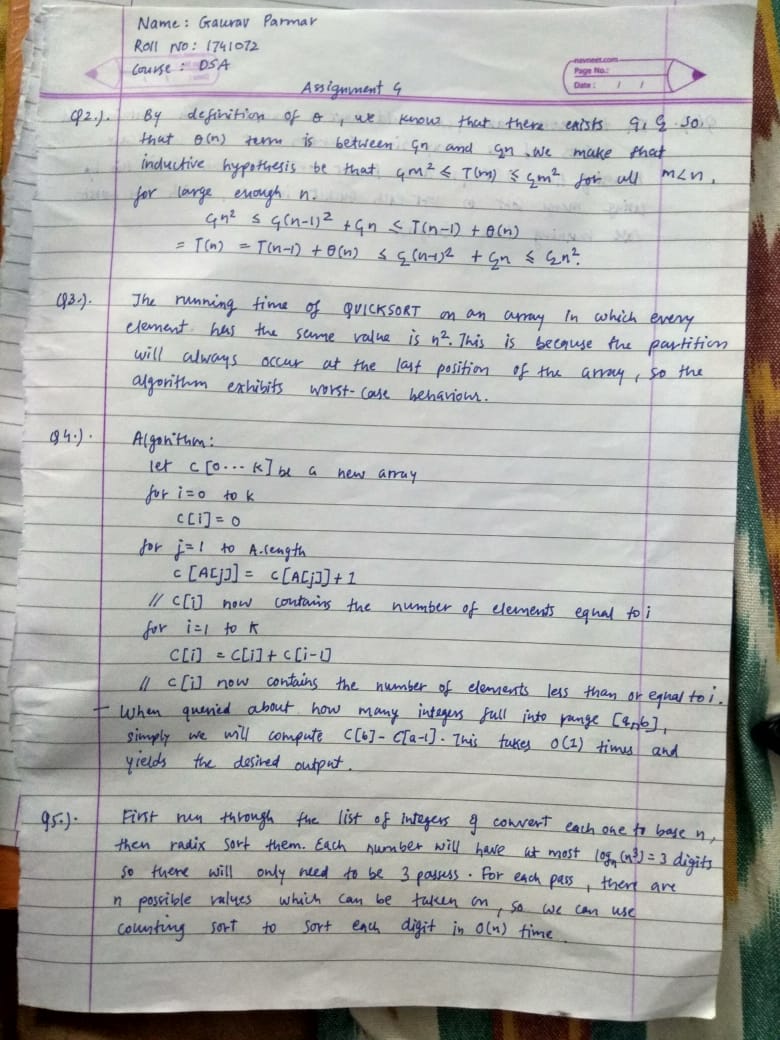 Name: Gaurav Parmar
Roll No: 1741072
Course: DSA
navneet.com
Page No.:
Date: / /
Assignment 4
Q2.). By definition of θ, we know that there exists C1, C2 so
that θ(n) term is between C1n and C2n. We make that
inductive hypothesis be that C1m² ≤ T(m) ≤ C2m² for all m<n,
for large enough n.
C1n² ≤ C1(n-1)² + C1n ≤ T(n-1) + θ(n)
= T(n) = T(n-1) + θ(n) ≤ C2(n-1)² + C2n ≤ C2n².
Q3.). The running time of QUICKSORT on an array in which every
element has the same value is n². This is because the partition
will always occur at the last position of the array, so the
algorithm exhibits worst-case behaviour.
Q4.). Algorithm:
let C[0...k] be a new array
for i=0 to k
C[i]=0
for j=1 to A.length
C[A[j]] = C[A[j]]+1
// C[i] now contains the number of elements equal to i
for i=1 to k
C[i] = C[i]+C[i-1]
// C[i] now contains the number of elements less than or equal to i.
- When queried about how many integers fall into range [a,b],
simply we will compute C[b]-C[a-1]. This takes O(1) times and
yields the desired output.
Q5.). First run through the list of integers & convert each one to base n,
then radix sort them. Each number will have at most logn(n³)=3 digits
so there will only need to be 3 passess. For each pass, there are
n possible values which can be taken on, so we can use
counting sort to sort each digit in O(n) time.